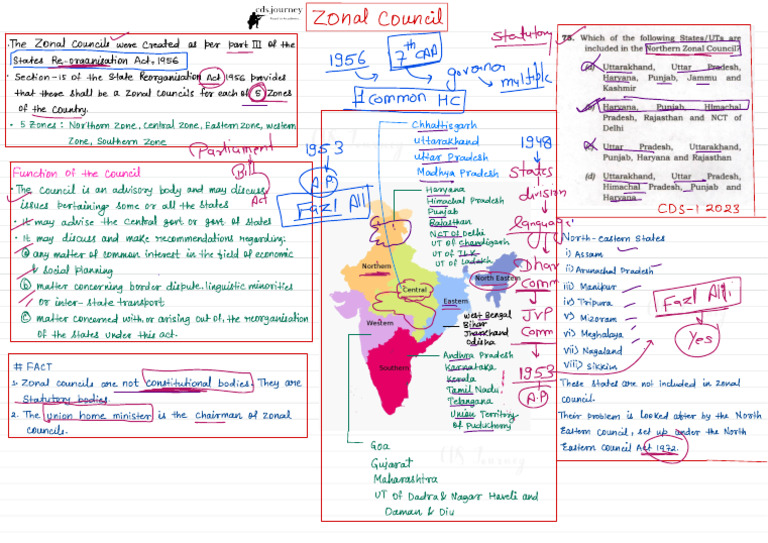 cdsjourney
Zonal Council
The Zonal Councils were created as per part III of the
States Re-organisation Act, 1956
Section-15 of the State Reorganisation Act 1956 provides
that there shall be a zonal councils for each of 5 zones
of the country.
5 Zones : Northern Zone, Central Zone, Eastern Zone, western
Zone, Southern zone
Parliament
Bill
Act
Function of the council
The council is an advisory body and may discuss
issues pertaining some or all the states
It may advise the central govt or govt of states
It may discuss and make recommendations regarding:
ⓐ any matter of common interest in the field of economic
& social planning
ⓑ matter concerning border dispute, linguistic minorities
or inter-state transport
ⓒ matter concerned with or arising out of, the reorganisation
of the states under this act.
# FACT
1. Zonal councils are not constitutional bodies. They are
Statutory bodies.
2. The union home minister is the chairman of zonal
councils.
1956
7th CAA
governor
multiple
1 Common HC
statutory
1953
A.P
Fazl Ali
Chhattisgarh
uttarakhand
uttar Pradesh
Madhya Pradesh
Haryana
Himachal Pradesh
Punjab
Rajasthan
NCT of Delhi
UT of Chandigarh
UT of J&K
UT of Ladakh
Northern
Central
North Eastern
Eastern
Western
Southern
West Bengal
Bihar
Jharkhand
Odisha
Andhra Pradesh
Karnataka
Kerala
Tamil Nadu
Telangana
Union Territry
of Puducherry
Goa
Gujarat
Maharashtra
UT of Dadra & Nagar Haveli and
Daman & Diu
1948
States
division
language
Dhar
Comm
JVP
Comm
1953
A.P
75. Which of the following States/UTs are
included in the Northern Zonal Council?
(a) Uttarakhand, Uttar Pradesh,
Haryana, Punjab, Jammu and
Kashmir
(b) Haryana, Punjab, Himachal
Pradesh, Rajasthan and NCT of
Delhi
(c) Uttar Pradesh, Uttarakhand,
Punjab, Haryana and Rajasthan
(d) Uttarakhand, Uttar Pradesh,
Himachal Pradesh, Punjab and
Haryana
CDS-1 2023
North-eastern States
i) Assam
ii) Arunachal Pradesh
iii) Manipur
iv) Tripura
v) Mizoram
vi) Meghalaya
vii) Nagaland
viii) Sikkim
Fazl Ali
Yes
These states are not included in zonal
council.
Their problem is looked after by the North
Eastern Council, set up under the North
Eastern Council Act 1972.